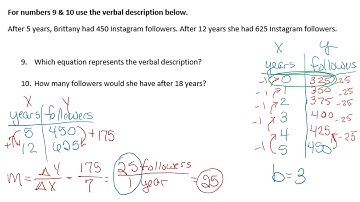 For numbers 9 & 10 use the verbal description below.
After 5 years, Brittany had 450 Instagram followers. After 12 years she had 625 Instagram followers.
9. Which equation represents the verbal description?
10. How many followers would she have after 18 years?
X Y
years followers
5 450
12 625
+7 +175
m = ΔY/ΔX = 175/7 = 25 followers/1 year = 25
X Y
years followers
-1 0 325 -25
-1 1 350 -25
-1 2 375 -25
3 400 -25
4 425 -25
-1 5 450
b = 3